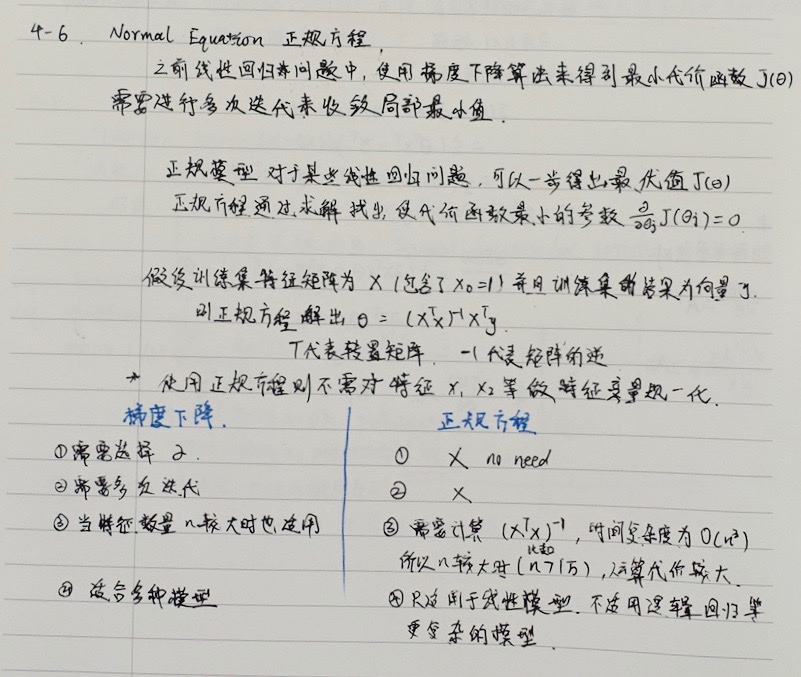 4-6. Normal Equation 正规方程,
之前线性回归问题中, 使用梯度下降算法来得到最小代价函数 J(θ)
需要进行多次迭代来收敛局部最小值.
正规模型 对于某些线性回归问题, 可以一步得出最优值 J(θ)
正规方程通过求解 找出 使代价函数最小的参数 ∂/∂θj J(θj) = 0
假设训练集特征矩阵为 X (包含了 x₀=1) 并且训练集的结果为向量 y.
则正规方程解出 θ = (XᵀX)⁻¹Xᵀy.
T代表转置矩阵. -1代表矩阵的逆
* 使用正规方程则不需对特征 x₁ x₂ 等做特征变量规一化.
梯度下降. 正规方程
① 需要选择 α. ① X no need
② 需要多次迭代 ② X
③ 当特征数量 n 较大时也适用 ③ 需要计算 (XᵀX)⁻¹, 时间复杂度为 O(n³)
所以 n 较大时 (n>1万), 运算代价较大.
④ 适合多种模型 ④ 只适用于线性模型. 不适用逻辑回归等
更复杂的模型.